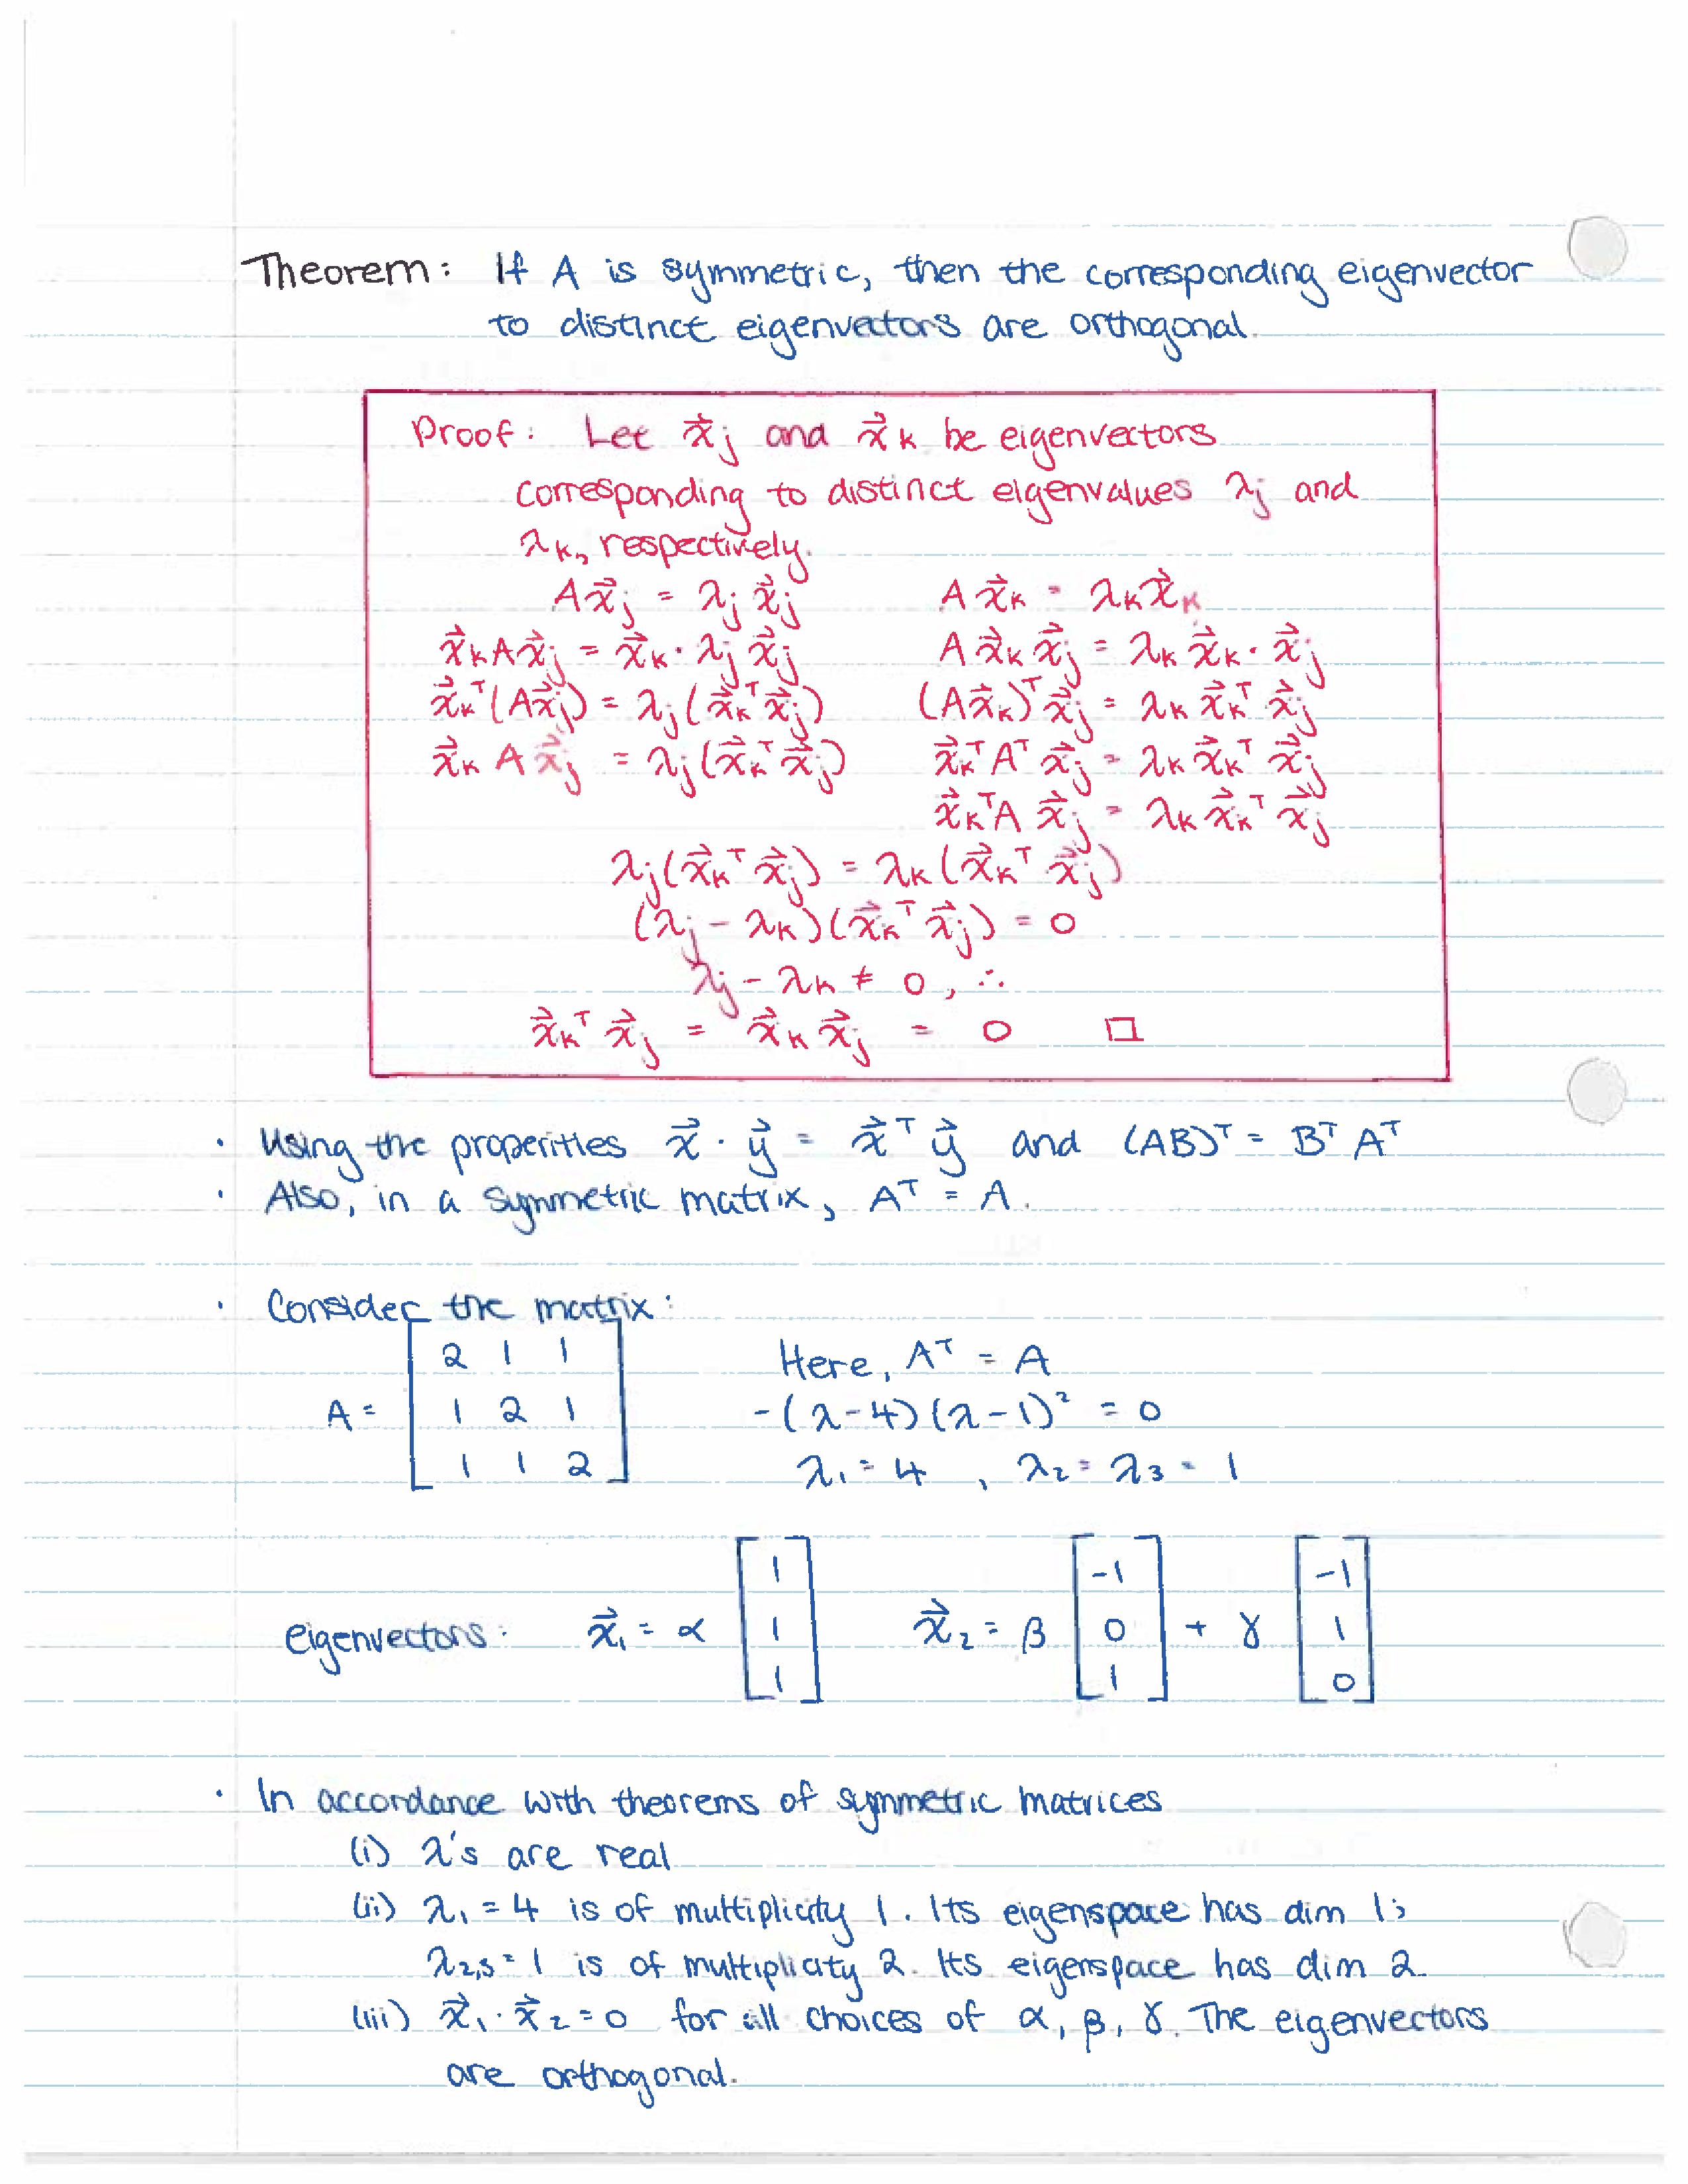 Theorem: If A is symmetric, then the corresponding eigenvector
to distinct eigenvectors are orthogonal.
Proof: Let x⃗j and x⃗k be eigenvectors
corresponding to distinct eigenvalues λj and
λk, respectively.
Ax⃗j = λj x⃗j    Ax⃗k = λk x⃗k
x⃗k A x⃗j = x⃗k · λj x⃗j    A x⃗k x⃗j = λk x⃗k · x⃗j
x⃗k^T (A x⃗j) = λj (x⃗k^T x⃗j)    (A x⃗k)^T x⃗j = λk x⃗k^T x⃗j
x⃗k A x⃗j = λj (x⃗k^T x⃗j)    x⃗k^T A^T x⃗j = λk x⃗k^T x⃗j
x⃗k^T A x⃗j = λk x⃗k^T x⃗j
λj (x⃗k^T x⃗j) = λk (x⃗k^T x⃗j)
(λj - λk)(x⃗k^T x⃗j) = 0
λj - λk ≠ 0, ∴
x⃗k^T x⃗j = x⃗k x⃗j = 0 □
· Using the properities x⃗ · y⃗ = x⃗^T y⃗ and (AB)^T = B^T A^T
· Also, in a symmetric matrix, A^T = A.
· Consider the matrix:
2 1 1    Here, A^T = A
A = 1 2 1    -(λ-4)(λ-1)² = 0
1 1 2    λ₁ = 4, λ₂ = λ₃ = 1
1    -1    -1
eigenvectors: x⃗₁ = α 1    x⃗₂ = β 0 + γ 1
1    1    0
· In accordance with theorems of symmetric matrices
(i) λ's are real
(ii) λ₁ = 4 is of multiplicity 1. Its eigenspace has dim 1;
λ₂,₃ = 1 is of multiplicity 2. Its eigenspace has dim 2.
(iii) x⃗₁ · x⃗₂ = 0 for all choices of α, β, γ. The eigenvectors
are orthogonal.